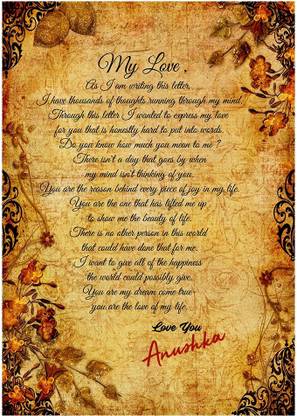 My Love,
As I am writing this letter,
I have thousands of thoughts running through my mind,
Through this letter I wanted to express my love
for you that is honestly hard to put into words.
Do you know how much you mean to me ?
There isn't a day that goes by when
my mind isn't thinking of you.
You are the reason behind every piece of joy in my life.
You are the one that has lifted me up
to show me the beauty of life.
There is no other person in this world
that could have done that for me.
I want to give all of the happiness
the world could possibly give.
You are my dream come true
you are the love of my life.
Love You
Anushka